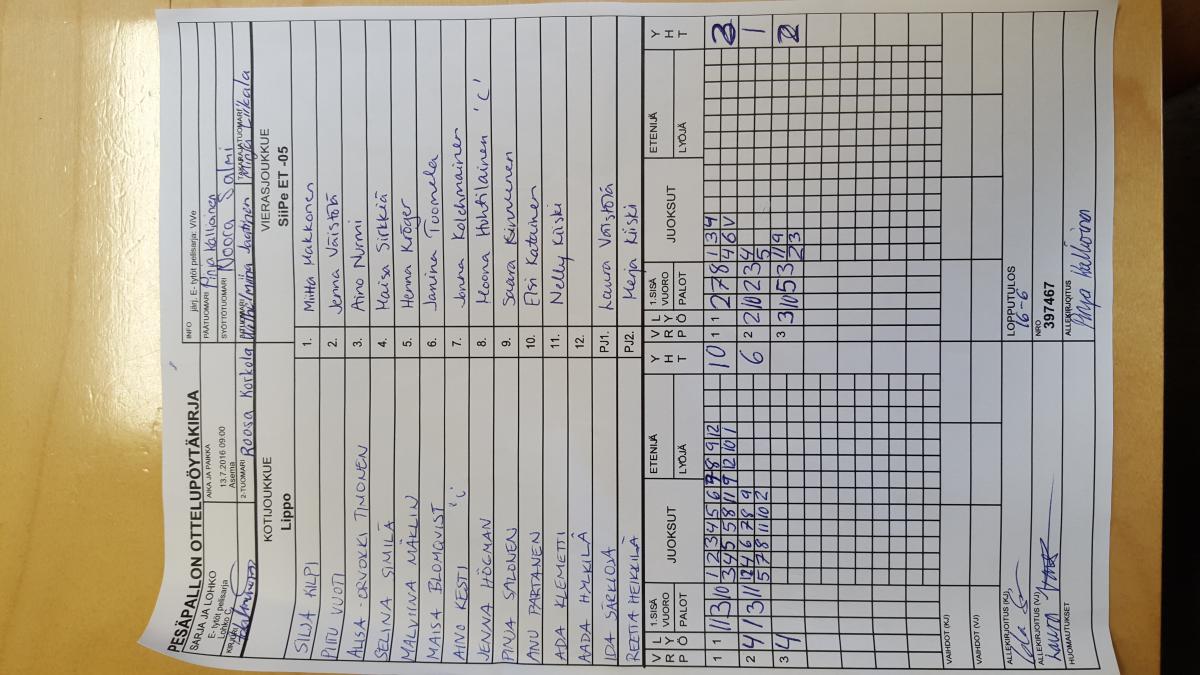 PESÄPALLON OTTELUPÖYTÄKIRJA
SARJA JA LOHKO
E- tytöt pelisarja
Lohko C
KIRJURI
AIKA JA PAIKKA
13.7.2016 09:00
Asema
2-TUOMARI
Roosa Korkola
INFO järj. E- tytöt pelisarja: ViVe
PÄÄTUOMARI Pinja Kallioinen
SYÖTTÖTUOMARI Noora Salmi
TAKARAJATUOMARI
KOTIJOUKKUE
Lippo
VIERASJOUKKUE
SiiPe ET -05
SILJA KILPI 1. Miitta Makkonen
PIITU VUOTI 2. Jenna Väistölä
AILSA-ORVOKKI TIMONEN 3. Aino Nurmi
SELINA SIMILÄ 4. Maisa Sirkkiä
MALVIINA MÄKLIN 5. Henna Kröger
MAISA BLOMQVIST 6. Janina Tuomela
AINO KESTI 7. Jonna Kolehmainen
JENNA HÖGMAN 8. Moona Huhtilainen 'C'
PINJA SALONEN 9. Saara Kinnunen
ANU PARTANEN 10. Elsi Katainen
ADA KLEMETTI 11. Nelly Kiiski
AADA HYLKILÄ 12.
IDA SÄRKIOJA PJ1. Laura Väistölä
REETTA HEIKKILÄ PJ2. Merja Kiiski
VRP LYÖ 1.SISÄ VUORO PALOT JUOKSUT ETENIJÄ LYÖJÄ YHT
VRP LYÖ 1.SISÄ VUORO PALOT JUOKSUT ETENIJÄ LYÖJÄ YHT
1 1 11 3 10 1 2 3 4 5 6 7 8 9 12 10
3 4 5 5 8 11 9 12 10 1
2 4 1 3 11 12 4 6 7 8 9 6
5 7 8 11 10 2
3 4
1 1 2 7 8 1 3 4 3
4 6 V
2 2 10 2 3 4 1
5
3 3 10 5 3 11 9 2
2 3
VAIHDOT (KJ)
VAIHDOT (VJ)
ALLEKIRJOITUS (KJ)
ALLEKIRJOITUS (VJ)
Laura
HUOMAUTUKSET
LOPPUTULOS
16-6
NRO
397467
ALLEKIRJOITUS
Pinja Kallioinen